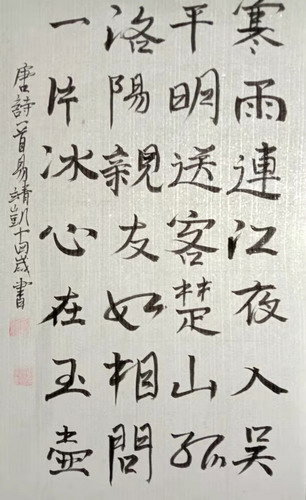 寒雨連江夜入吴
平明送客楚山孤
洛陽親友如相問
一片冰心在玉壺
唐詩一首易靖凱十四歲書